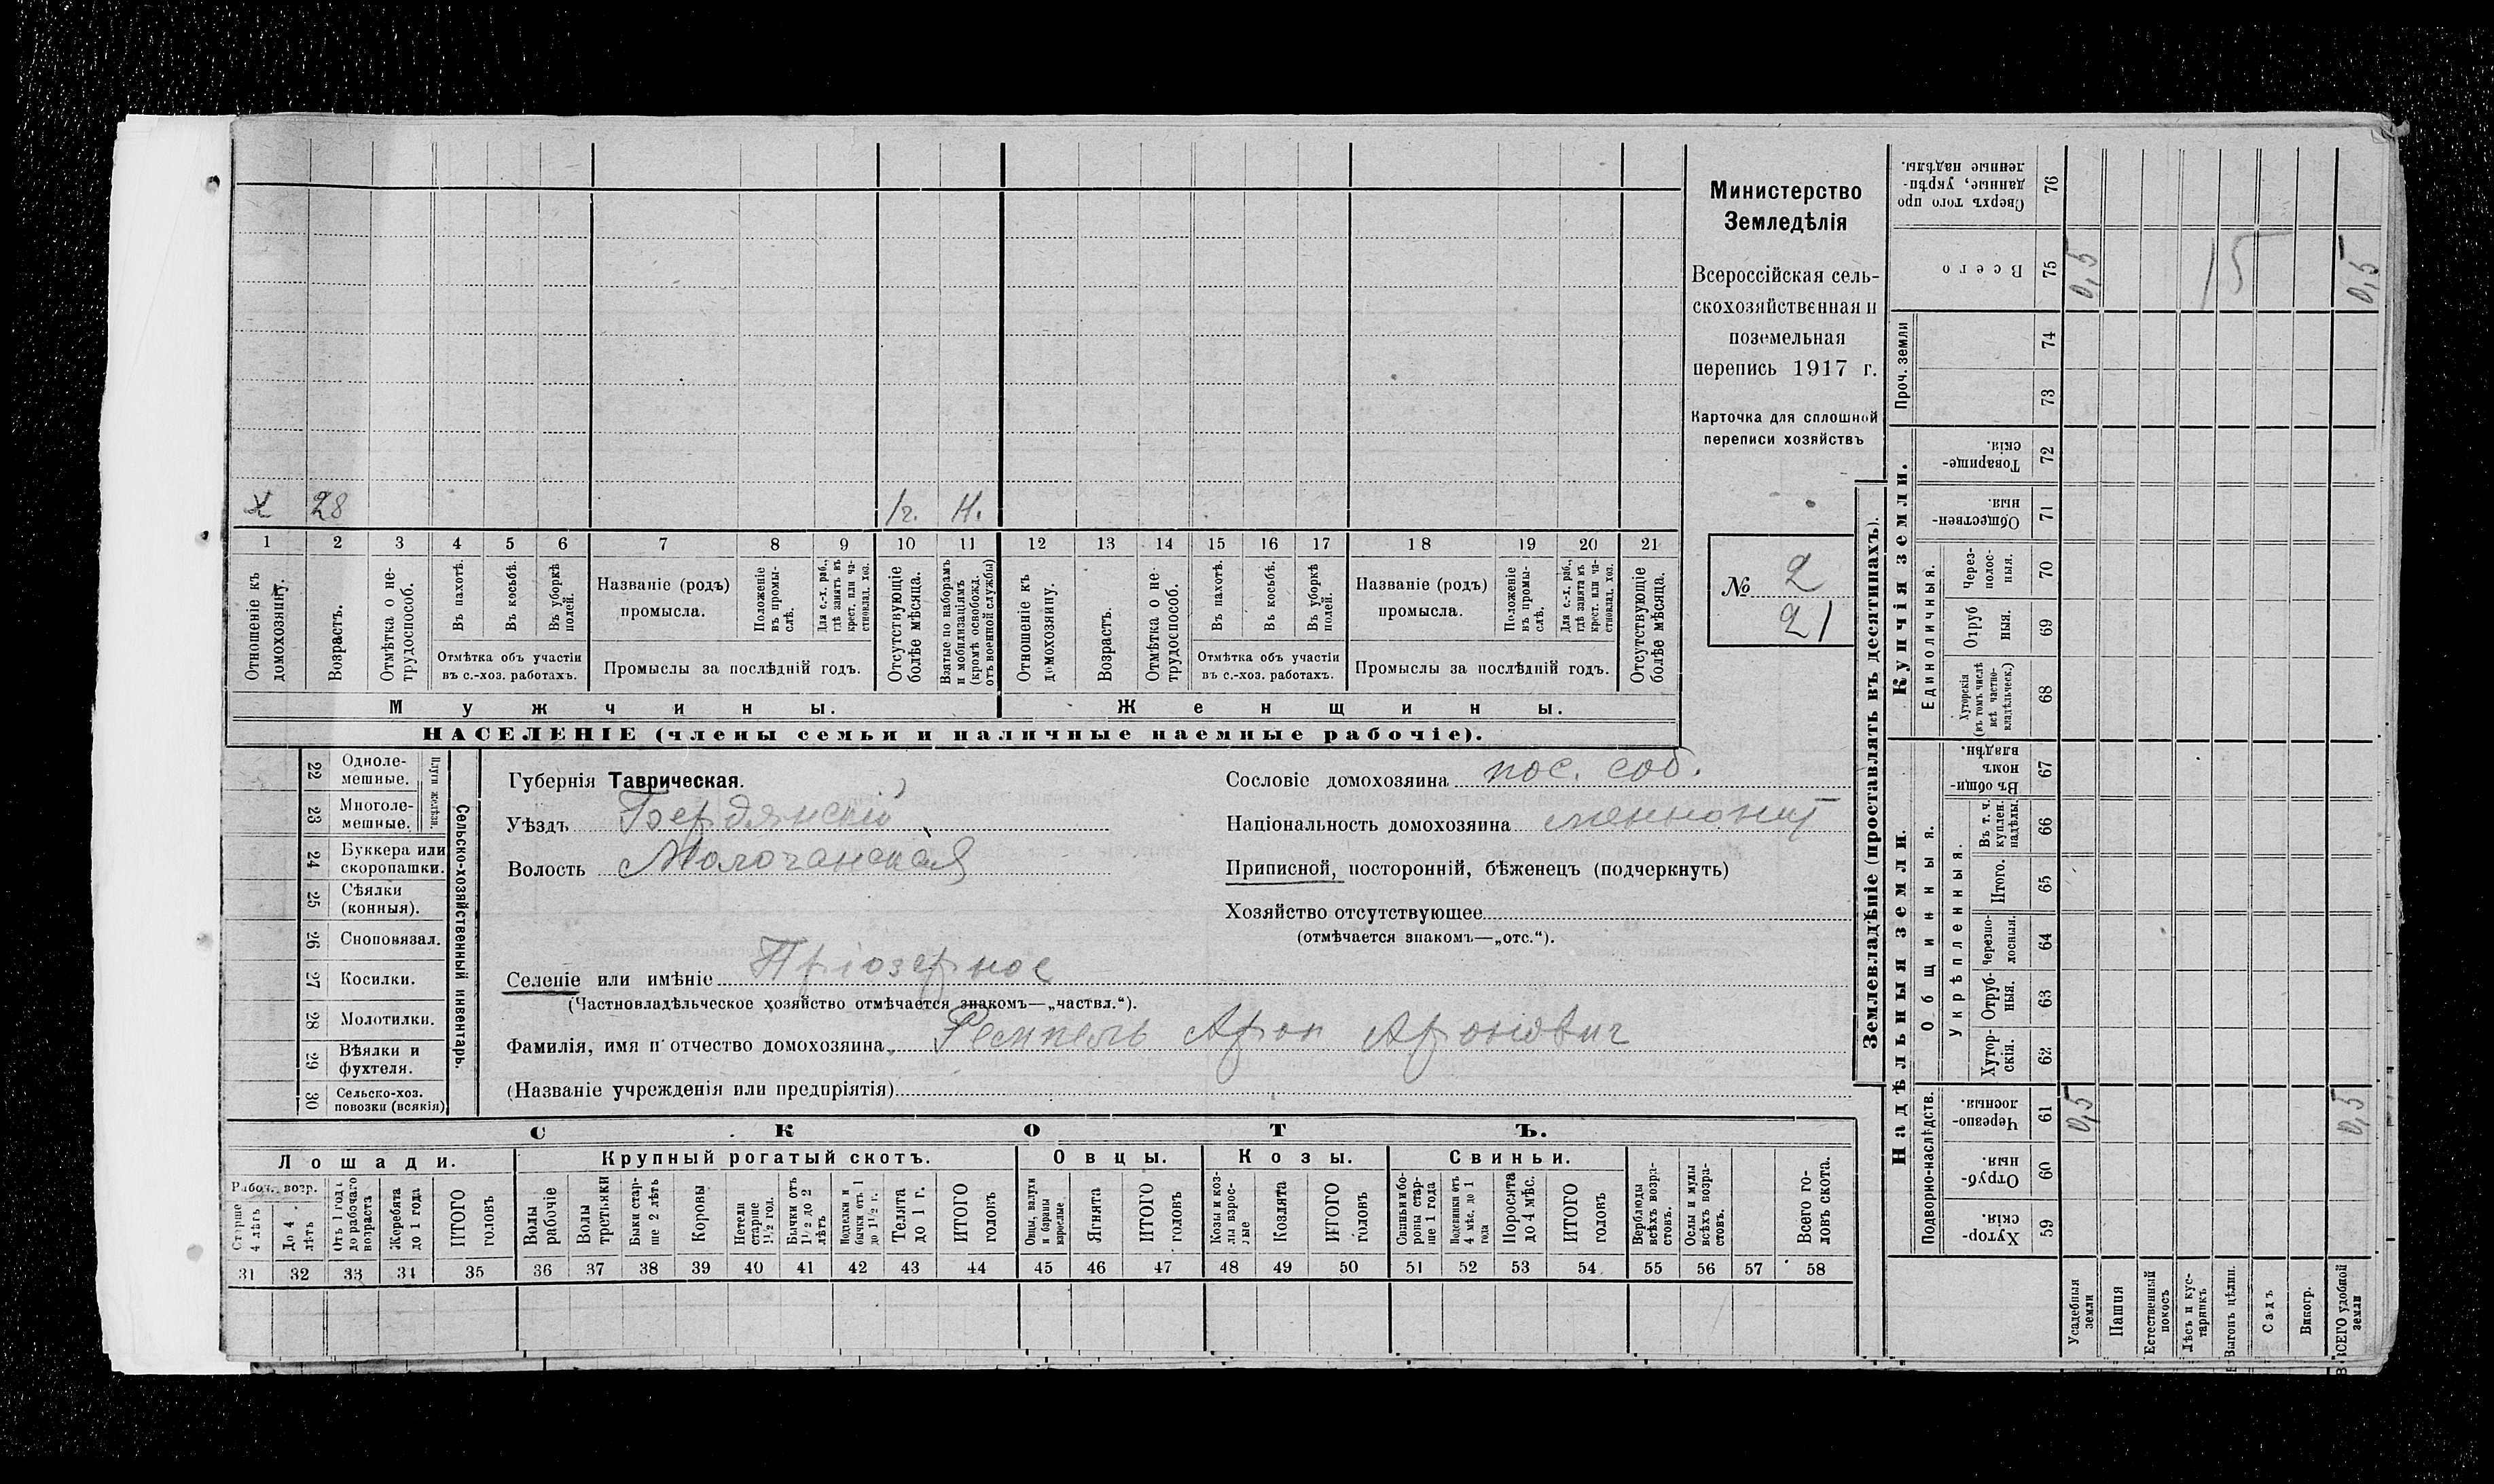 Министерство
Земледѣлія
Всероссійская сель-
скохозяйственная и
поземельная
перепись 1917 г.
Карточка для сплошной
переписи хозяйствъ
№ 2
21
х 28 1г. Н.
1 2 3 4 5 6 7 8 9 10 11 12 13 14 15 16 17 18 19 20 21
Отношеніе къ домохозяину.
Возрастъ.
Отмѣтка о не-трудоспособ.
Въ пахотѣ.
Въ косьбѣ.
Въ уборкѣ полей.
Отмѣтка объ участіи
въ с.-хоз. работахъ.
Названіе (родъ)
промысла.
Положеніе въ промы-слѣ.
Для с.-х. раб., гдѣ занятъ въ крест. или ча-стновлад. хоз.
Промыслы за послѣдній годъ.
Отсутствующіе болѣе мѣсяца.
Взятые по наборамъ и мобилизаціямъ (кромѣ освобожд. отъ военной службы)
Отношеніе къ домохозяину.
Возрастъ.
Отмѣтка о не трудоспособ.
Въ пахотѣ.
Въ косьбѣ.
Въ уборкѣ полей.
Отмѣтка объ участіи
въ с.-хоз. работахъ.
Названіе (родъ)
промысла.
Положеніе въ промы-слѣ.
Для с.-х. раб., гдѣ занята въ крест. или ча-стновлад. хоз.
Промыслы за послѣдній годъ.
Отсутствующіе болѣе мѣсяца.
Мужчины. Женщины.
НАСЕЛЕНІЕ (члены семьи и наличные наемные рабочіе).
22 Однole-мешные.
23 Многоле-мешные.
Плуги желѣзн.
24 Буккера или скоропашки.
25 Сѣялки (конныя).
26 Сноповязал.
27 Косилки.
28 Молотилки.
29 Вѣялки и фухтеля.
30 Сельско-хоз. повозки (всякія)
Сельско-хозяйственный инвентарь.
Губернія Таврическая.
Уѣздъ Бердянскій
Волость Молочанская
Сословіе домохозяина пос. соб.
Національность домохозяина меннонит
Приписной, посторонній, бѣженецъ (подчеркнуть)
Хозяйство отсутствующее
(отмѣчается знакомъ—„отс.“).
Селеніе или имѣніе Пріозерное
(Частновладѣльческое хозяйство отмѣчается знакомъ—„частвл.“).
Фамилія, имя и отчество домохозяина Ремпель Арон Аронович
(Названіе учрежденія или предпріятія)
СКОТЪ.
Лошади. Крупный рогатый скотъ. Овцы. Козы. Свиньи.
Рабоч. возр.
Старше 4 лѣтъ
До 4 лѣтъ
Отъ 1 года до рабочаго возраста
Жеребята до 1 года
ИТОГО головъ
Волы рабочіе
Волы третьяки
Быки стар-ше 2 лѣтъ
Коровы
Нетели старше 1½ год.
Бычки отъ 1½ до 2 лѣтъ
Подтелки и бычки отъ 1 до 1½ г.
Телята до 1 г.
ИТОГО головъ
Овцы, валухи и бараны взрослые
Ягнята
ИТОГО головъ
Козы и коз-лы взрос-лые
Козлята
ИТОГО головъ
Свиньи и бо-ровы стар-ше 1 года
Подсвинки отъ 4 мѣс. до 1 года
Поросята до 4 мѣс.
ИТОГО головъ
Верблюды всѣхъ возра-стовъ.
Ослы и мулы всѣхъ возра-стовъ.
Всего го-ловъ скота.
31 32 33 34 35 36 37 38 39 40 41 42 43 44 45 46 47 48 49 50 51 52 53 54 55 56 57 58
Землевладѣніе (проставлять въ десятинахъ).
Надѣльныя земли. Купчія земли.
Проч. земли
Подворно-наслѣдств.
Общинныя.
Укрѣпленныя.
Единоличныя.
Хутор-скія. 59
Отруб-ныя. 60
Черезпо-лосныя. 61 0,5 0,5
Хутор-скія. 62
Отруб-ныя. 63
Черезпо-лосныя. 64
Итого. 65
Въ т. ч. куплен. надѣлы. 66
Въ общи-номъ владѣн. 67
Хуторскія (въ томъ числѣ всѣ частно-владѣльческ.) 68
Отруб ныя. 69
Через-полос-ныя. 70
Обществен-ныя. 71
Товарище-скія. 72
73
74
Всего 75 0,5 15 0,5
Сверхъ того про данные, укрѣп-ленные надѣлы. 76
Усадебныя земли
Пашня
Естественный покосъ
Лѣсъ и кус-тарникъ
Выгонъ цѣлин.
Садъ
Виногр.
ВСЕГО удобной земли